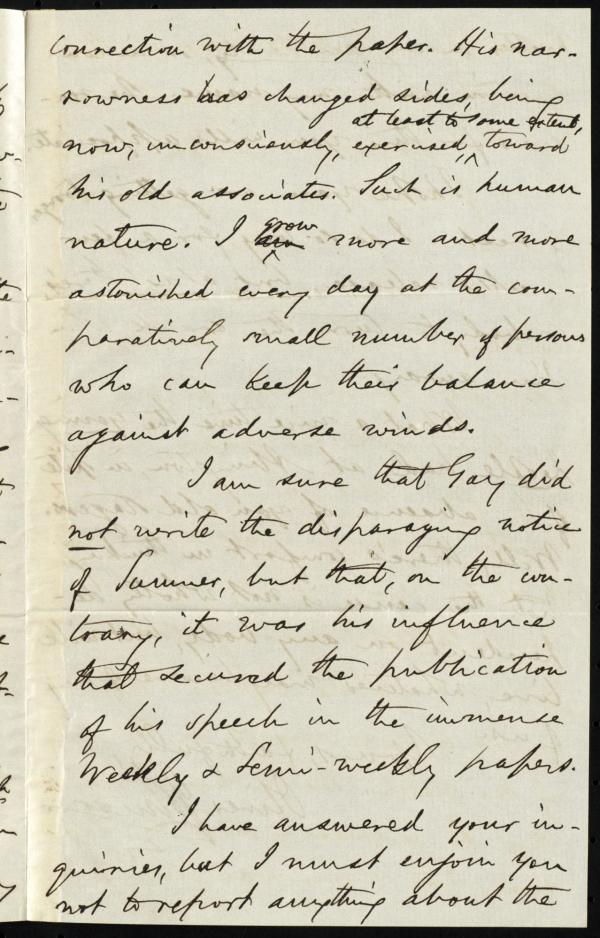 connection with the paper. His nar-
rowness has changed sides, being
at least to some extent,
now, unconsciously, exercised, ^ toward
his old associates. Such is human
grow
nature. I am more and more
astonished every day at the com-
paratively small number of persons
who can keep their balance
against adverse winds.
I am sure that Gay did
not write the disparaging notice
of Sumner, but that, on the con-
trary, it was his influence
that secured the publication
of his speech in the immense
Weekly & Semi-weekly papers.
I have answered your in-
quiries, but I must enjoin you
not to report anything about the